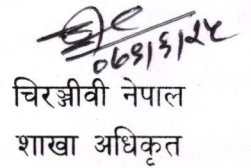 ०७९।६।२५
चिरञ्जीवी नेपाल
शाखा अधिकृत